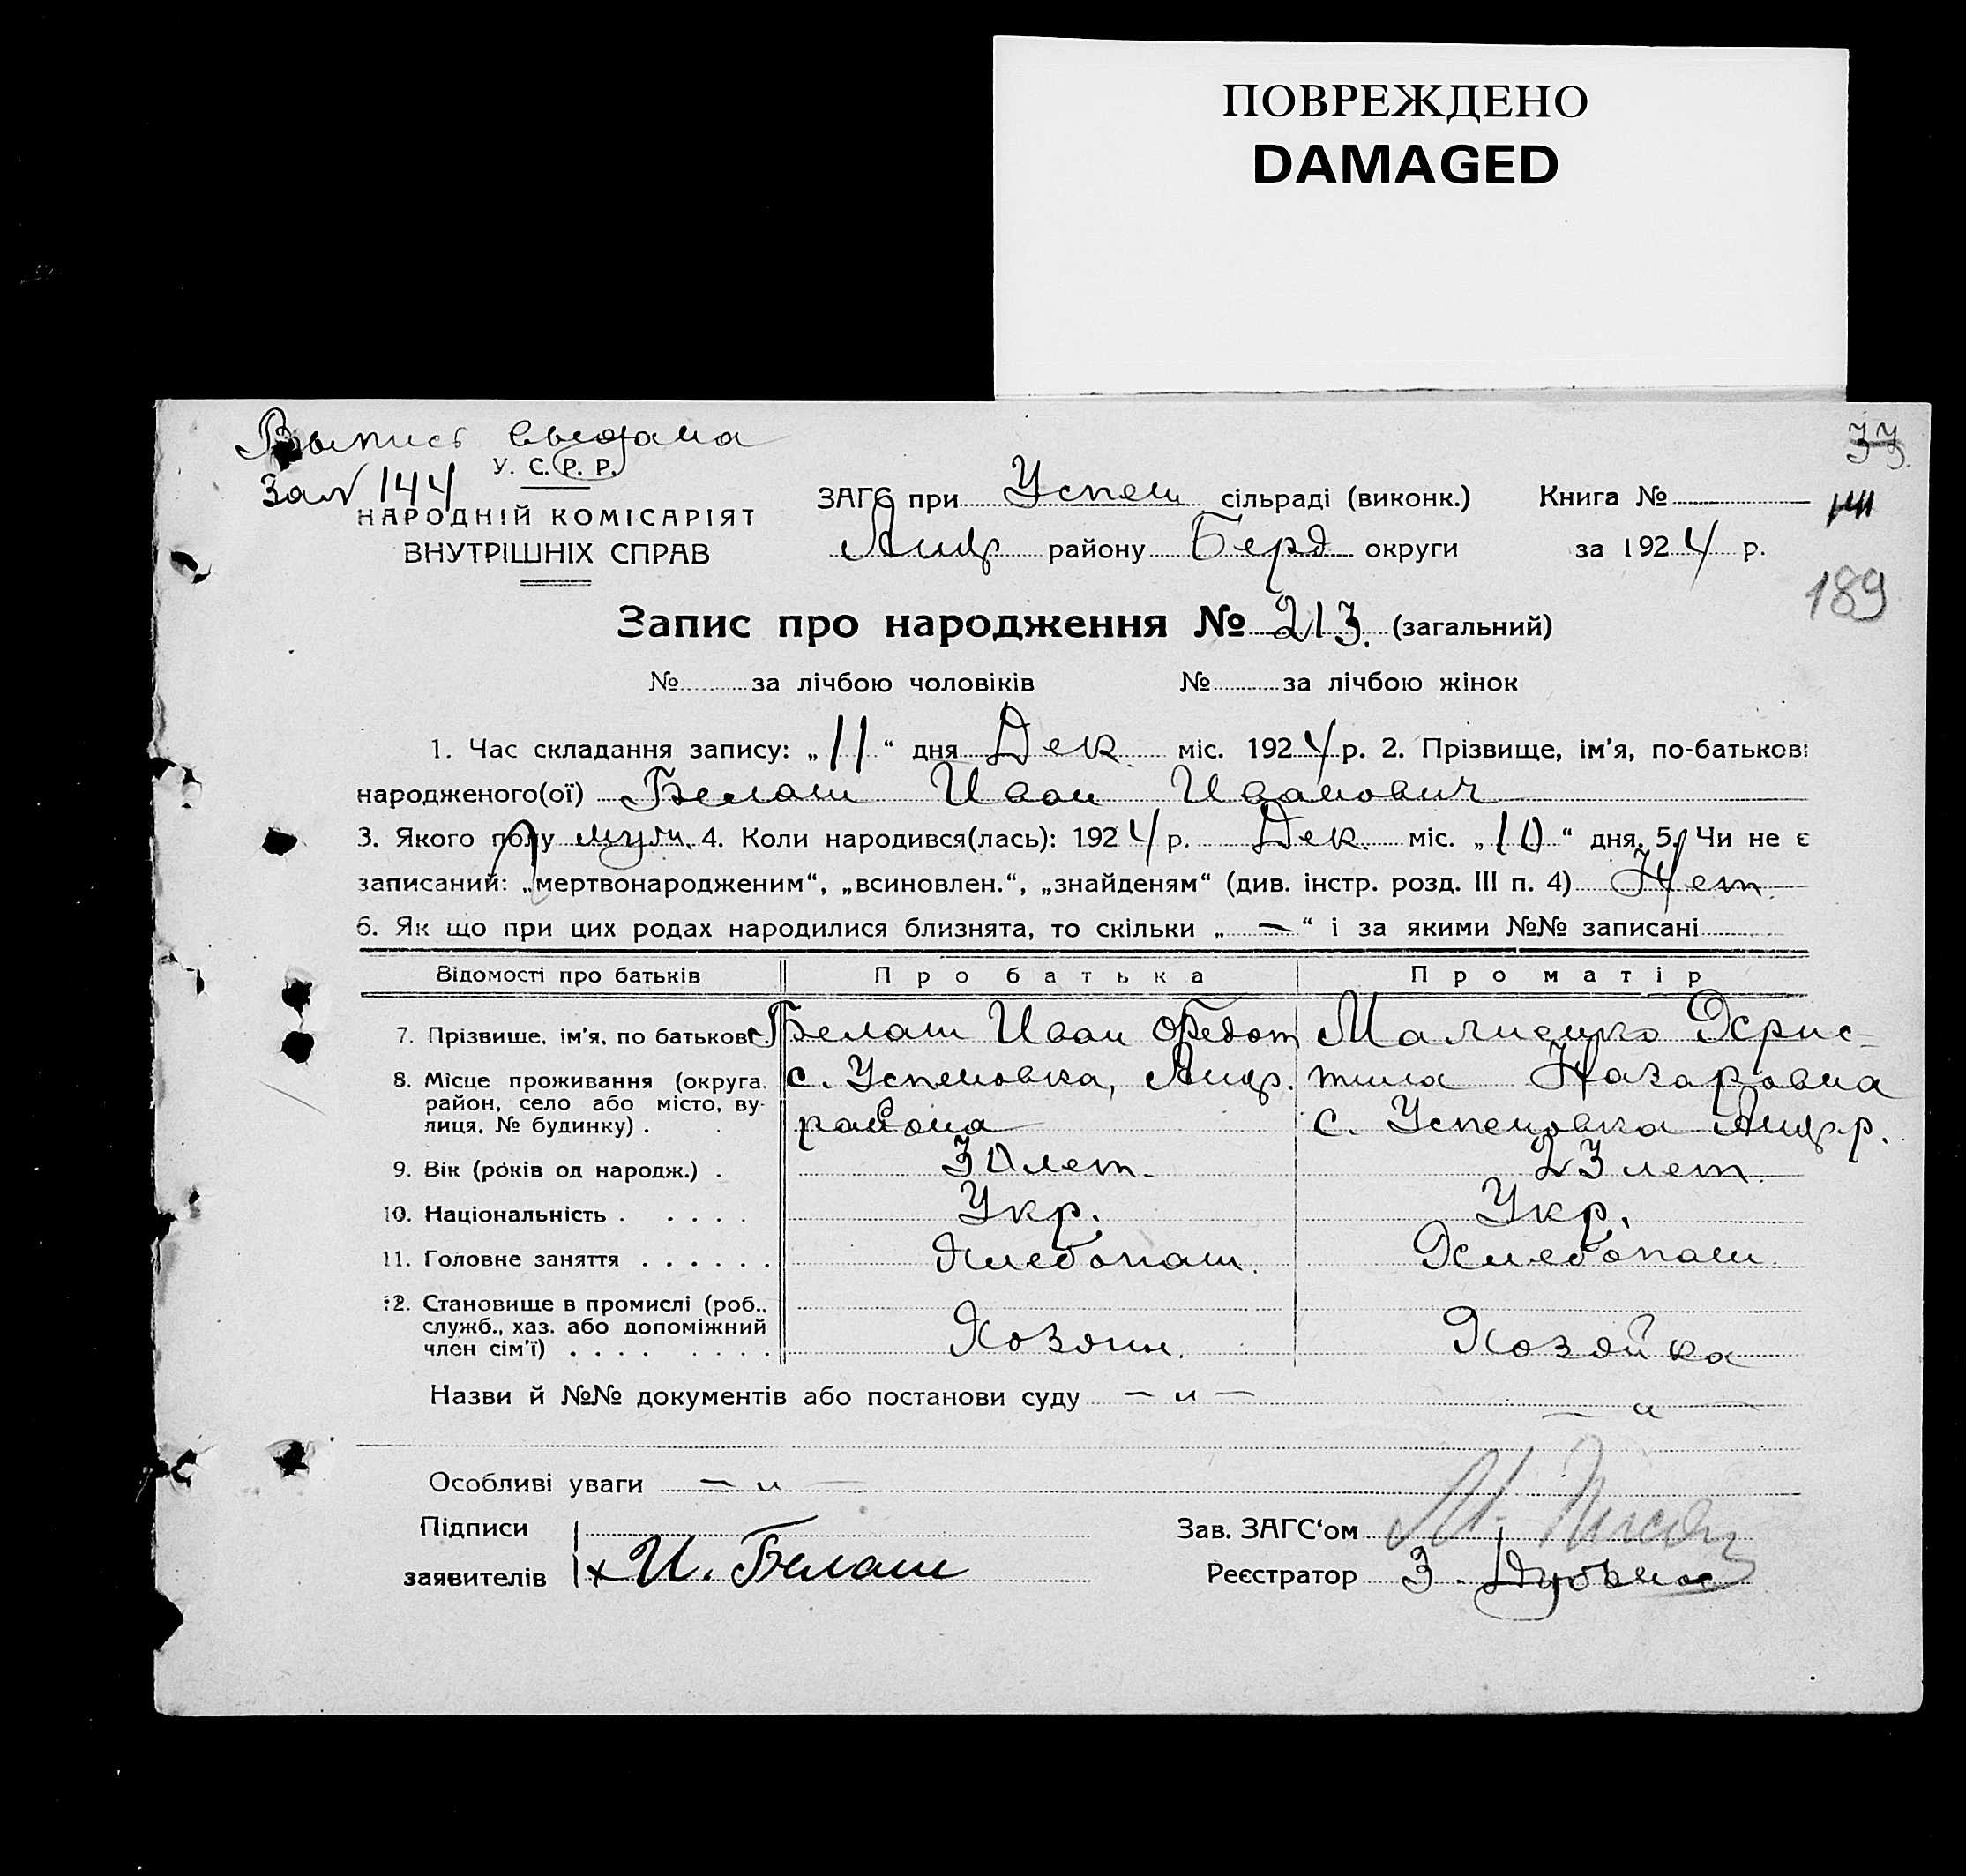 ПОВРЕЖДЕНО
DAMAGED
Выпись выдана
144
У. С. Р. Р.
НАРОДНІЙ КОМІСАРІЯТ
ВНУТРІШНІХ СПРАВ
33
ЗАГС при Успен сільраді (виконк.) Книга №
Андр району Берд округи за 1924 р.
189
Запис про народження № 213. (загальний)
№ за лічбою чоловіків № за лічбою жінок
1. Час складання запису: „11“ дня Дек. міс. 1924 р. 2. Прізвище, ім'я, по-батькові
народженого(ої) Белаш Иван Иванович
3. Якого полу муж. 4. Коли народився(лась): 1924 р. Дек. міс. „10“ дня. 5. Чи не є
записаний: „мертвонародженим“, „всиновлен.“, „знайденям“ (див. інстр. розд. III п. 4) Нет.
6. Як що при цих родах народилися близнята, то скільки „ — “ і за якими №№ записані
Відомості про батьків Про батька Про матір
7. Прізвище, ім'я, по батькові. Белаш Иван Федот Малиенко Христина Назаровна
8. Місце проживання (округа, район, село або місто, вулиця, № будинку) . с. Успеновка, Андр. района с. Успеновка Андр. р.
9. Вік (років од народж.) . 30 лет. 23 лет
10. Національність . . . . . Укр. Укр.
11. Головне заняття . . . . . . Хлебопаш. Хлебопаш.
12. Становище в промислі (роб., служб., хаз. або допоміжний член сім'ї) . . . . . . . . Хозяин. Хозяйка
Назви й №№ документів або постанови суду — и — — и —
Особливі уваги — и —
Підписи Зав. ЗАГС‘ом
заявителів х И. Белаш Реєстратор З.